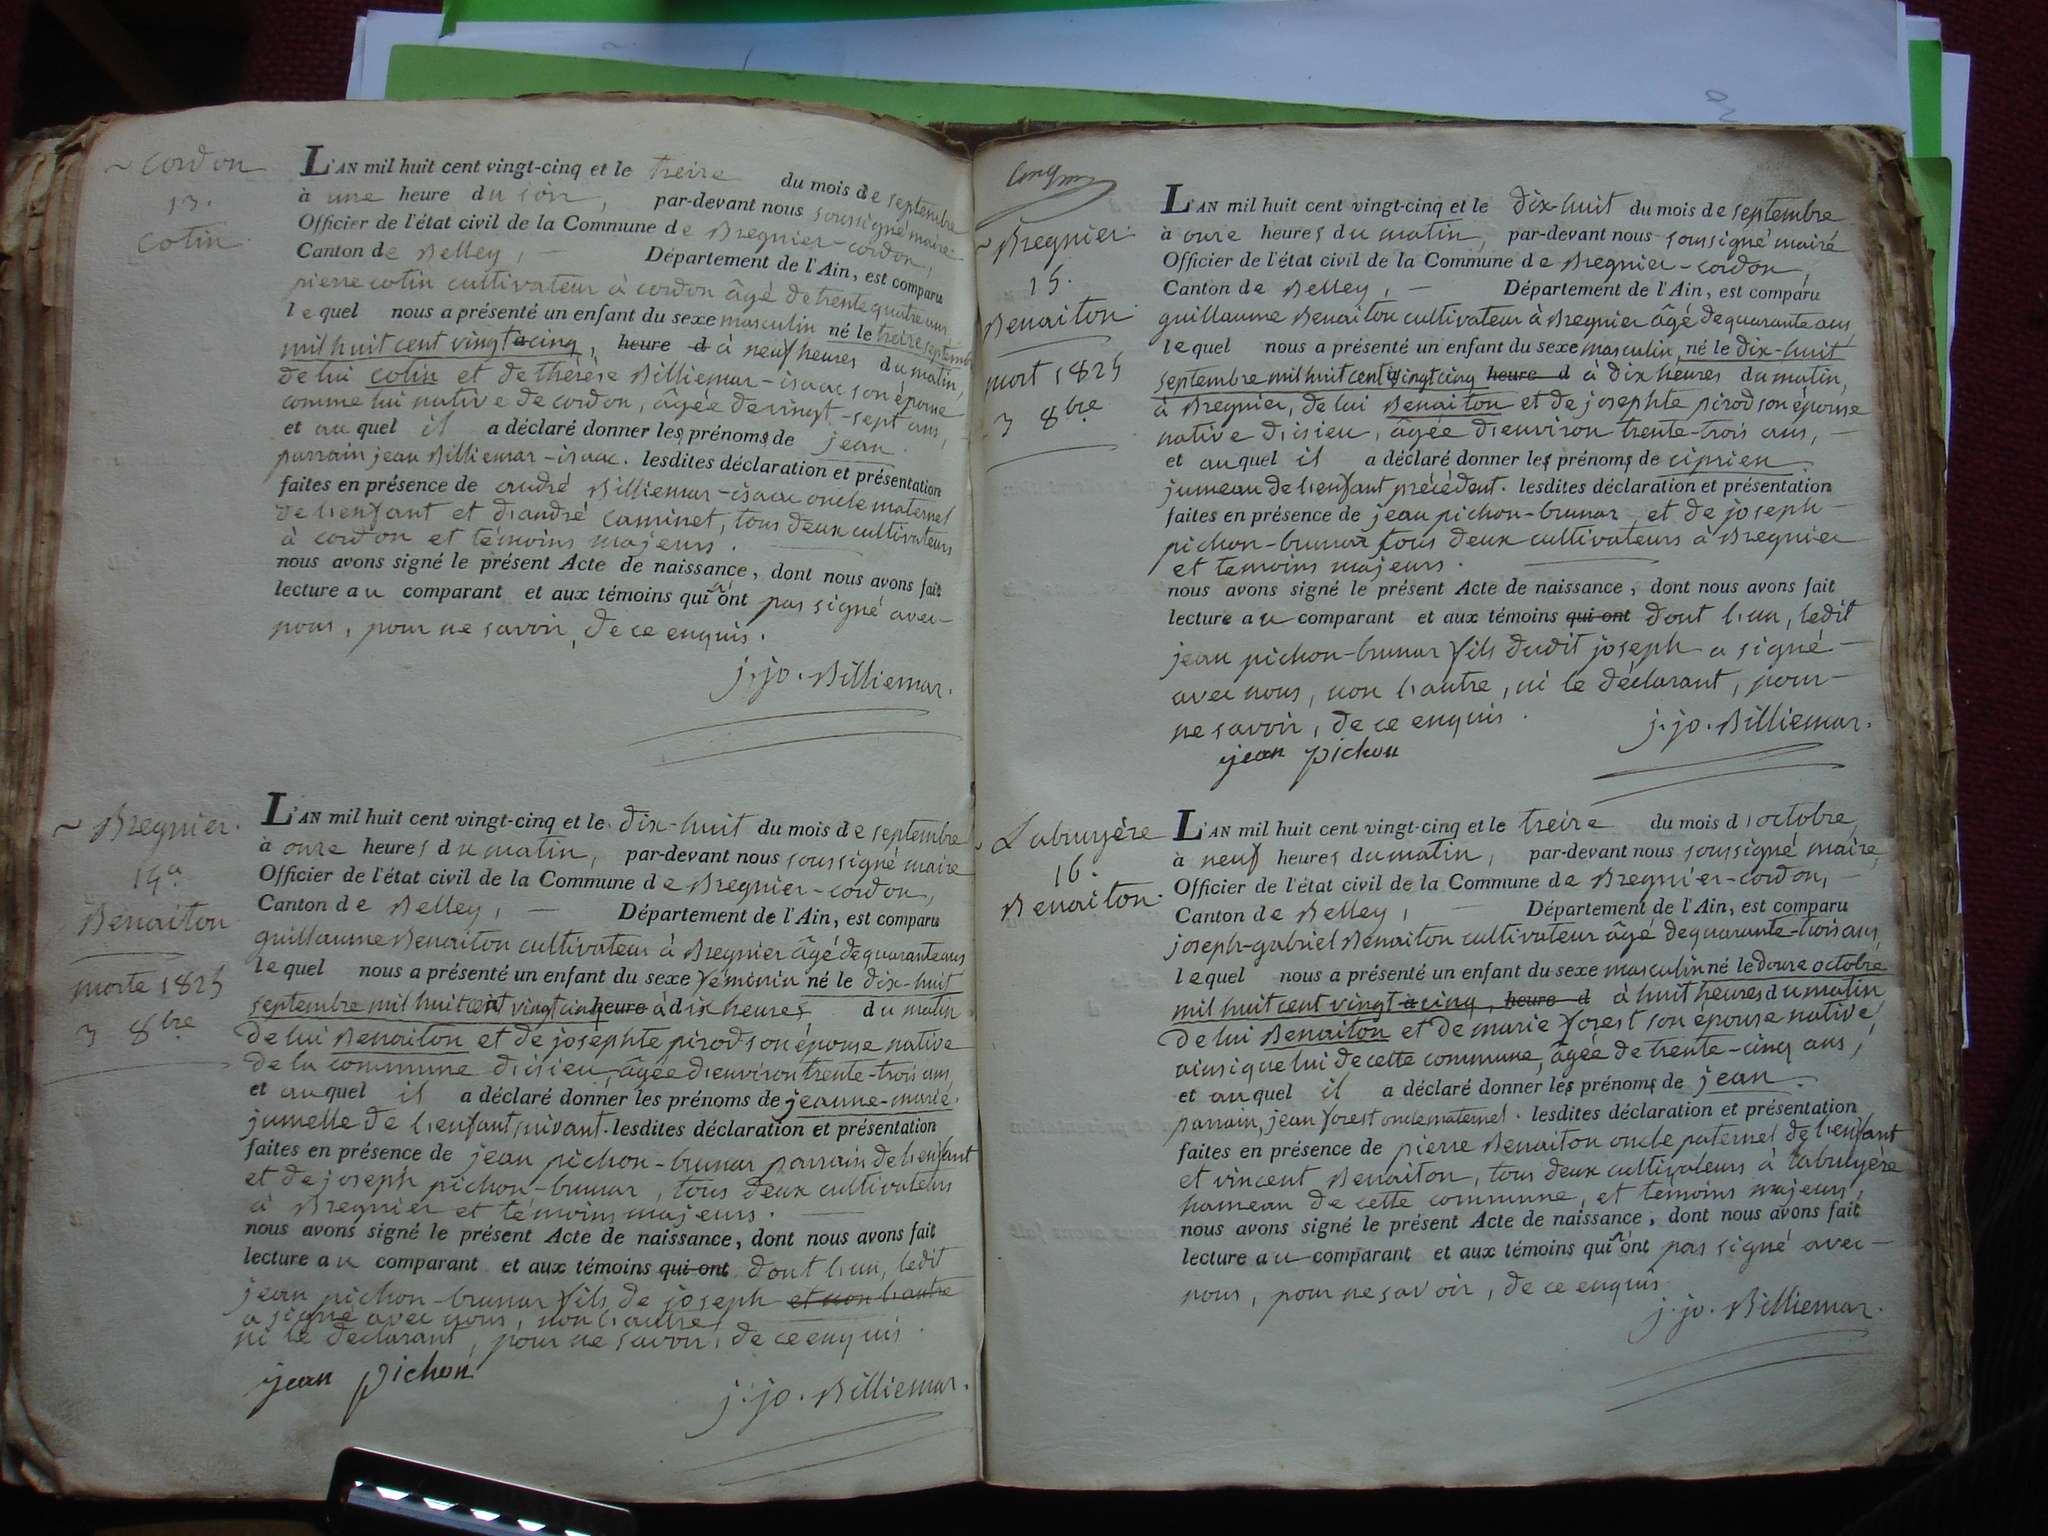 ~ Cordon
13.
Cotin.
L'AN mil huit cent vingt-cinq et le treize du mois de septembre
à une heure du soir, par-devant nous soussigné maire
Officier de l'état civil de la Commune de Bregnier-cordon,
Canton de Belley, — Département de l'Ain, est comparu
pierre cotin cultivateur à cordon âgé de trente quatre ans
lequel nous a présenté un enfant du sexe masculin né le treize septembre
mil huit cent vingt à cinq, heure d à neuf heures du matin,
de lui cotin et de thérèse Billiemar-isaac son épouse
comme lui native de cordon, âgée de vingt-sept ans,
et auquel il a déclaré donner les prénoms de jean.
parrain jean Billiemar-isaac. lesdites déclaration et présentation
faites en présence de andré Billiemar-isaac oncle maternel
de l'enfant et d'andré Caminet, tous deux cultivateurs
à cordon et témoins majeurs.
nous avons signé le présent Acte de naissance, dont nous avons fait
lecture au comparant et aux témoins qui n'ont pas signé avec
nous, pour ne savoir, de ce enquis.
j. jo. Billiemar.
~ Bregnier.
14a
Benaiton
morte 1825
3 8bre
L'AN mil huit cent vingt-cinq et le dix-huit du mois de septembre
à onze heures du matin, par-devant nous soussigné maire
Officier de l'état civil de la Commune de Bregnier-cordon,
Canton de Belley, — Département de l'Ain, est comparu
guillaume Benaiton cultivateur à Bregnier âgé de quarante ans
lequel nous a présenté un enfant du sexe féminin né le dix-huit
septembre mil huit cent vingt cinq heure à dix heures du matin
de lui Benaiton et de josephte pirod son épouse native
de la commune d'isieu, âgée d'environ trente-trois ans,
et auquel il a déclaré donner les prénoms de jeanne-marie.
jumelle de l'enfant suivant. lesdites déclaration et présentation
faites en présence de jean pichon-brunar parrain de l'enfant
et de joseph pichon-brunar, tous deux cultivateurs
à Bregnier et témoins majeurs.
nous avons signé le présent Acte de naissance, dont nous avons fait
lecture au comparant et aux témoins qui ont dont l'un, ledit
jean pichon-brunar fils de joseph et non l'autre
a signé avec nous, non l'autre,
ni le déclarant, pour ne savoir, de ce enquis.
jean pichon
j. jo. Billiemar.
~ Bregnier.
15.
Benaiton
mort 1825
3 8bre
L'AN mil huit cent vingt-cinq et le dix-huit du mois de septembre
à onze heures du matin, par-devant nous soussigné maire
Officier de l'état civil de la Commune de Bregnier-cordon,
Canton de Belley, — Département de l'Ain, est comparu
guillaume Benaiton cultivateur à Bregnier âgé de quarante ans,
lequel nous a présenté un enfant du sexe masculin, né le dix-huit
septembre mil huit cent vingt cinq heure d à dix heures du matin,
à Bregnier, de lui Benaiton et de josephte pirod son épouse
native d'isieu, âgée d'environ trente-trois ans, —
et auquel il a déclaré donner les prénoms de ciprien
jumeau de l'enfant précédent. lesdites déclaration et présentation
faites en présence de jean pichon-brunar et de joseph
pichon-brunar tous deux cultivateurs à Bregnier
et temoins majeurs.
nous avons signé le présent Acte de naissance, dont nous avons fait
lecture au comparant et aux témoins qui ont dont l'un, ledit
jean pichon-brunar fils dudit joseph a signé —
avec nous, non l'autre, ni le déclarant, pour —
ne savoir, de ce enquis.
j. jo. Billiemar.
jean pichon
Labruyère
16.
Benaiton.
L'AN mil huit cent vingt-cinq et le treize du mois d'octobre,
à neuf heures du matin, par-devant nous soussigné maire,
Officier de l'état civil de la Commune de Bregnier-cordon, —
Canton de Belley, — Département de l'Ain, est comparu
joseph-gabriel Benaiton cultivateur âgé de quarante-trois ans,
lequel nous a présenté un enfant du sexe masculin né le douze octobre
mil huit cent vingt à cinq, heure d à huit heures du matin
de lui Benaiton et de marie forest son épouse native,
ainsi que lui de cette commune, âgée de trente-cinq ans,
et auquel il a déclaré donner les prénoms de jean.
parrain, jean forest oncle maternel. lesdites déclaration et présentation
faites en présence de pierre Benaiton oncle paternel de l'enfant
et vincent Benaiton, tous deux cultivateurs à Labruyère
hameau de cette commune, et temoins majeurs,
nous avons signé le présent Acte de naissance, dont nous avons fait
lecture au comparant et aux témoins qui n'ont pas signé avec —
nous, pour ne savoir, de ce enquis
j. jo. Billiemar.